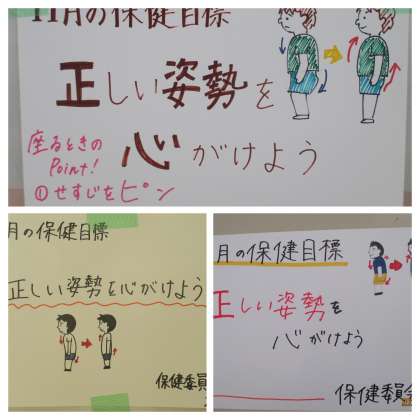 11月の保健目標
正しい姿勢を
心がけよう
座るときの
Point!
①せすじをピン
月の保健目標
正しい姿勢を心がけよう
保健委員
月の保健目標
正しい姿勢を
心がけよう
保健委員会